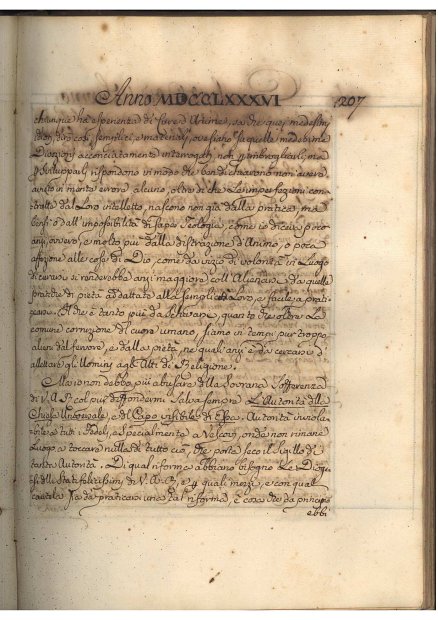 Anno MDCCLXXXVI 207
chiunque ha esperienza di Cure d'Anime, sa che quei medesimi
idioti, da così semplici, e materiali, ove siano su quelle medesime
Divozioni acconciatamente interrogati, non imbrogliati, ma
sviluppati, rispondono in modo che ben dichiarono non avere
avuto in mente errore alcuno, oltre di che Le imperfezioni con
tratte dal Loro intelletto, nascono non già dalla pratica, ma
bensì o dall'impossibilità di saper Teologia, come io diceva poco
anzi, ovvero, e molto più dalla distrazione d'Animo, o poca
afezione alle cose di Dio, come da vizio di volontà in Luogo
di curarsi si renderebbe anzi maggiore coll'Alienare da quelle
pratiche di pietà adattate alla semplicità Loro, e facile a prati
carsi. Il che è tanto più da schivare, quanto che oltre La
comune corruzione di cuore umano, siamo in tempi pur troppo
alieni dal fervore, e dalla pietà, ne quali anzi è da cercare d'
allettare gli Uomini agli Atti di Religione.
Ma io non debbo più abusare della Sovrana Sofferenza
di V. A. R. col più diffondermi. Salva sempre L'Autorità della
Chiesa Universale, e del Capo visibile di Essa, Autorità inviola
bile a tutti i Fedeli, e specialmente a Vescovi, onde non rimane
Luogo a toccare nulla di tutto ciò, che porta seco il Sigillo di
tanta Autorità. Di qual riforme abbiano bisogno Le Dioce
si delli Stati felicissimi di V. A. R., e per quali mezzi, e con qual
cautela sia da praticarsi una tal riforma, è cosa che da principio
ebbi